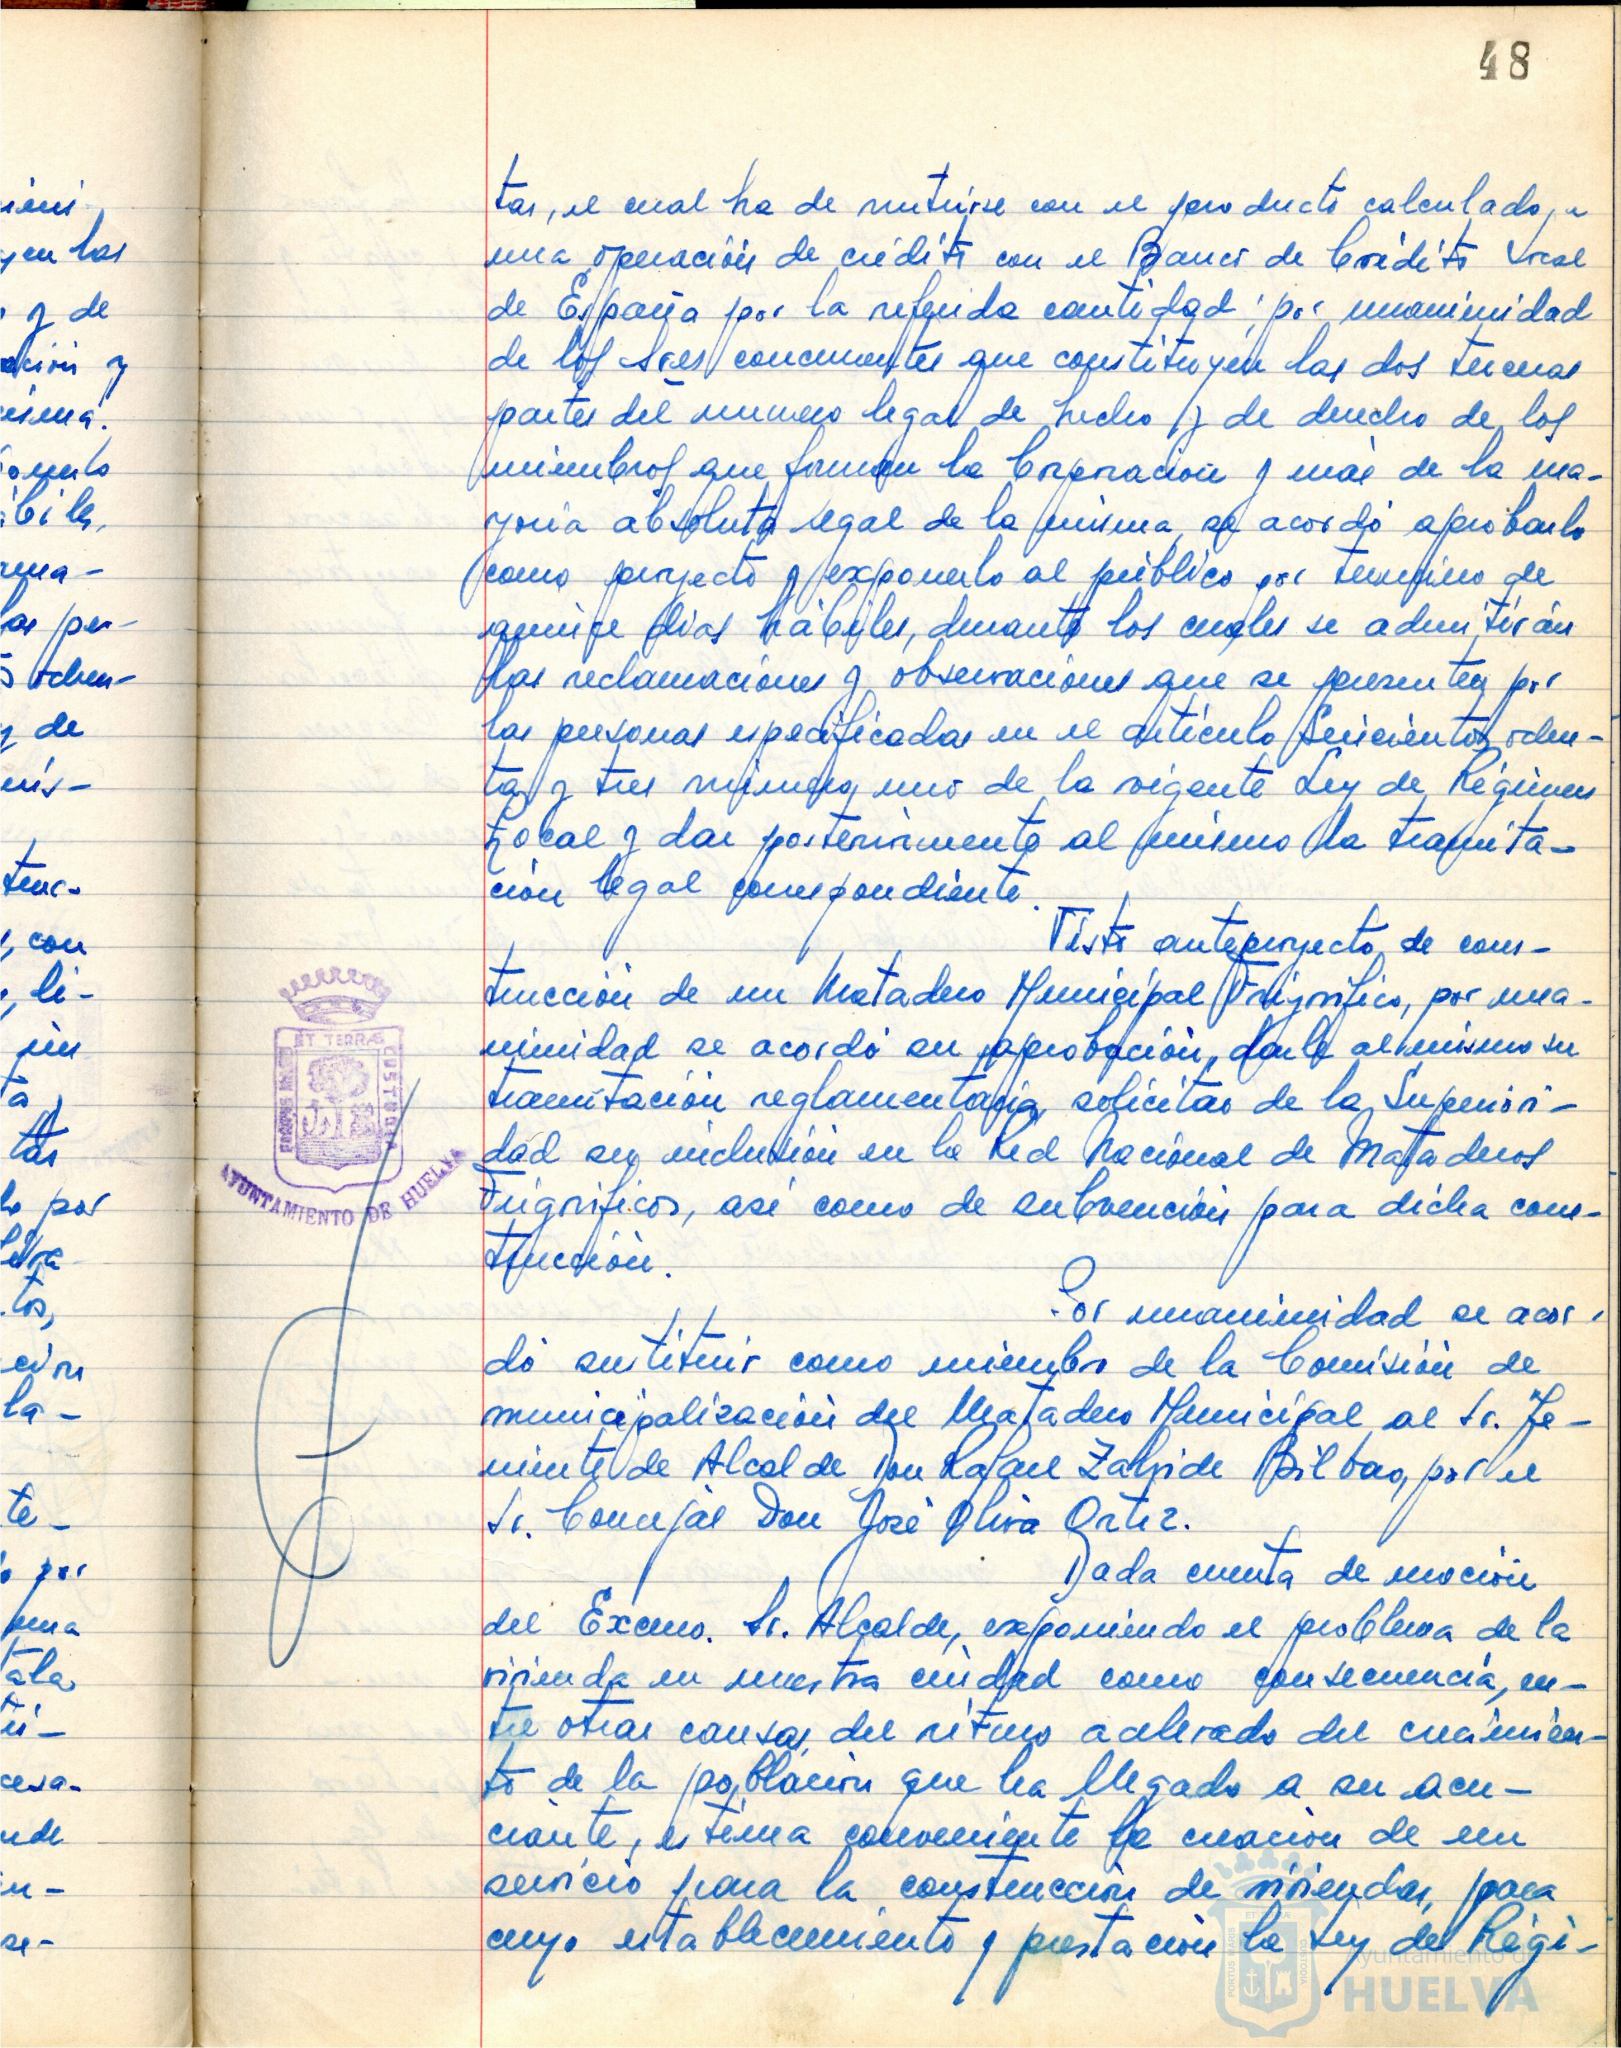 48
tas, el cual ha de nutrirse con el producto calculado, a
una operación de crédito con el Banco de Crédito Local
de España por la referida cantidad; por unanimidad
de los Sres concurrentes que constituyen las dos terceras
partes del numero legal de hecho y de derecho de los
miembros que forman la Corporación y más de la ma-
yoria absoluta legal de la misma, se acordó aprobarlo
como proyecto y exponerlo al público por termino de
quince dias hábiles, durante los cuales se admitirán
las reclamaciones y observaciones que se presenten por
las personas especificadas en el artículo Seiscientos ochen-
ta y tres número uno de la vigente Ley de Régimen
Local y dar posteriormente al mismo la tramita-
ción legal correspondiente.
Visto anteproyecto de cons-
trucción de un Matadero Municipal Frigorifico, por una-
nimidad se acordó su aprobación, darle al mismo su
tramitación reglamentaria, solicitar de la Superiori-
dad su inclusión en la Red Nacional de Mataderos
Frigorificos, así como de subvención para dicha cons-
trucción.
Por unanimidad se acor-
dó sustituir como miembro de la Comisión de
municipalización del Matadero Municipal al Sr. Te-
niente de Alcalde Don Rafael Bilbao, por el
Sr. Concejal Don José Oliva Ortiz.
Dada cuenta de moción
del Excmo. Sr. Alcalde, exponiendo el problema de la
vivienda en nuestra ciudad como consecuencia, en-
tre otras causas, del ritmo acelerado del crecimien-
to de la población que ha llegado a su acu-
ciante, estima conveniente la creación de un
servicio para la construcción de viviendas, para
cuyo establecimiento y prestación la Ley de Régi-
ET TERRAE
CUSTODIA
AYUNTAMIENTO DE HUELVA
Ayuntamiento de
HUELVA